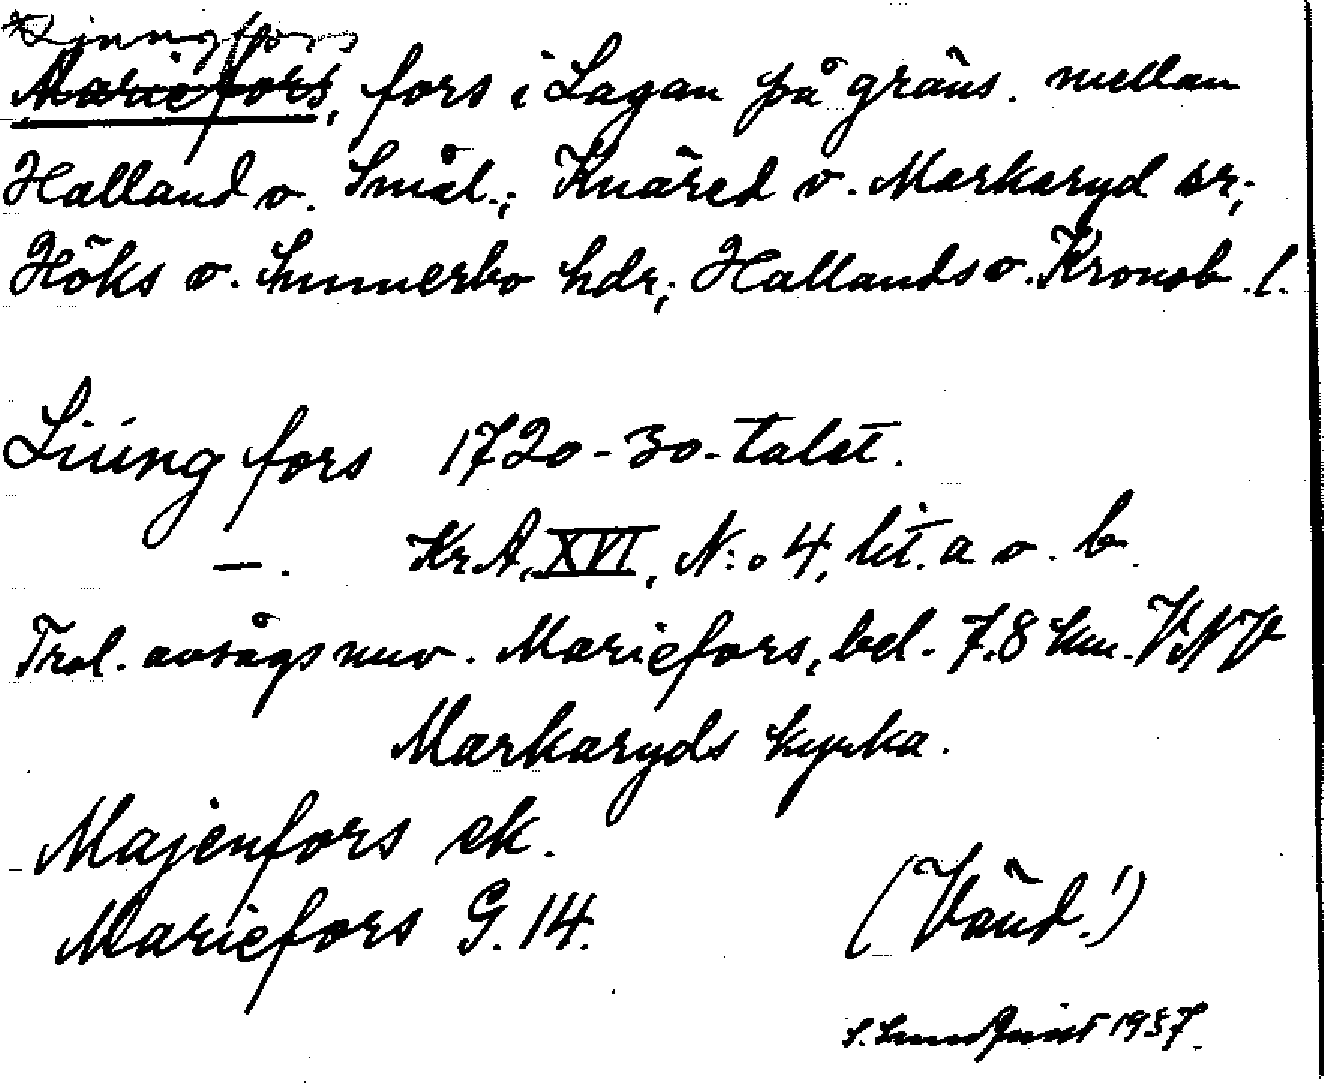 *Ljungfors
Mariefors, fors i Lagan på gräns. mellan
Halland o. Smål.; Knäred o. Markaryd sr;
Höks o. Sunnerbo hdr; Hallands o. Kronob. l.
Liúngfors 1720-30-talet.
—. KrA, XVI, N:o 4, lit. a o. b.
Trol. avságs nuv. Mariefors, bel. 7.8 km. VNV
Markaryds kyrka.
Majenfors ek.
Mariefors G. 14.
(Vänd!)
S. Sundquist 1937.